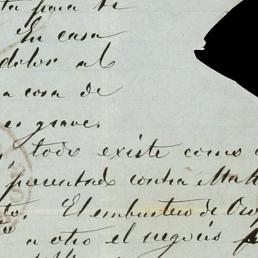 ta para ti
En casa
dolor al
a cosa de
es grave.
todo existe como
presentado contra
to. El embustero de
a otro el negocio